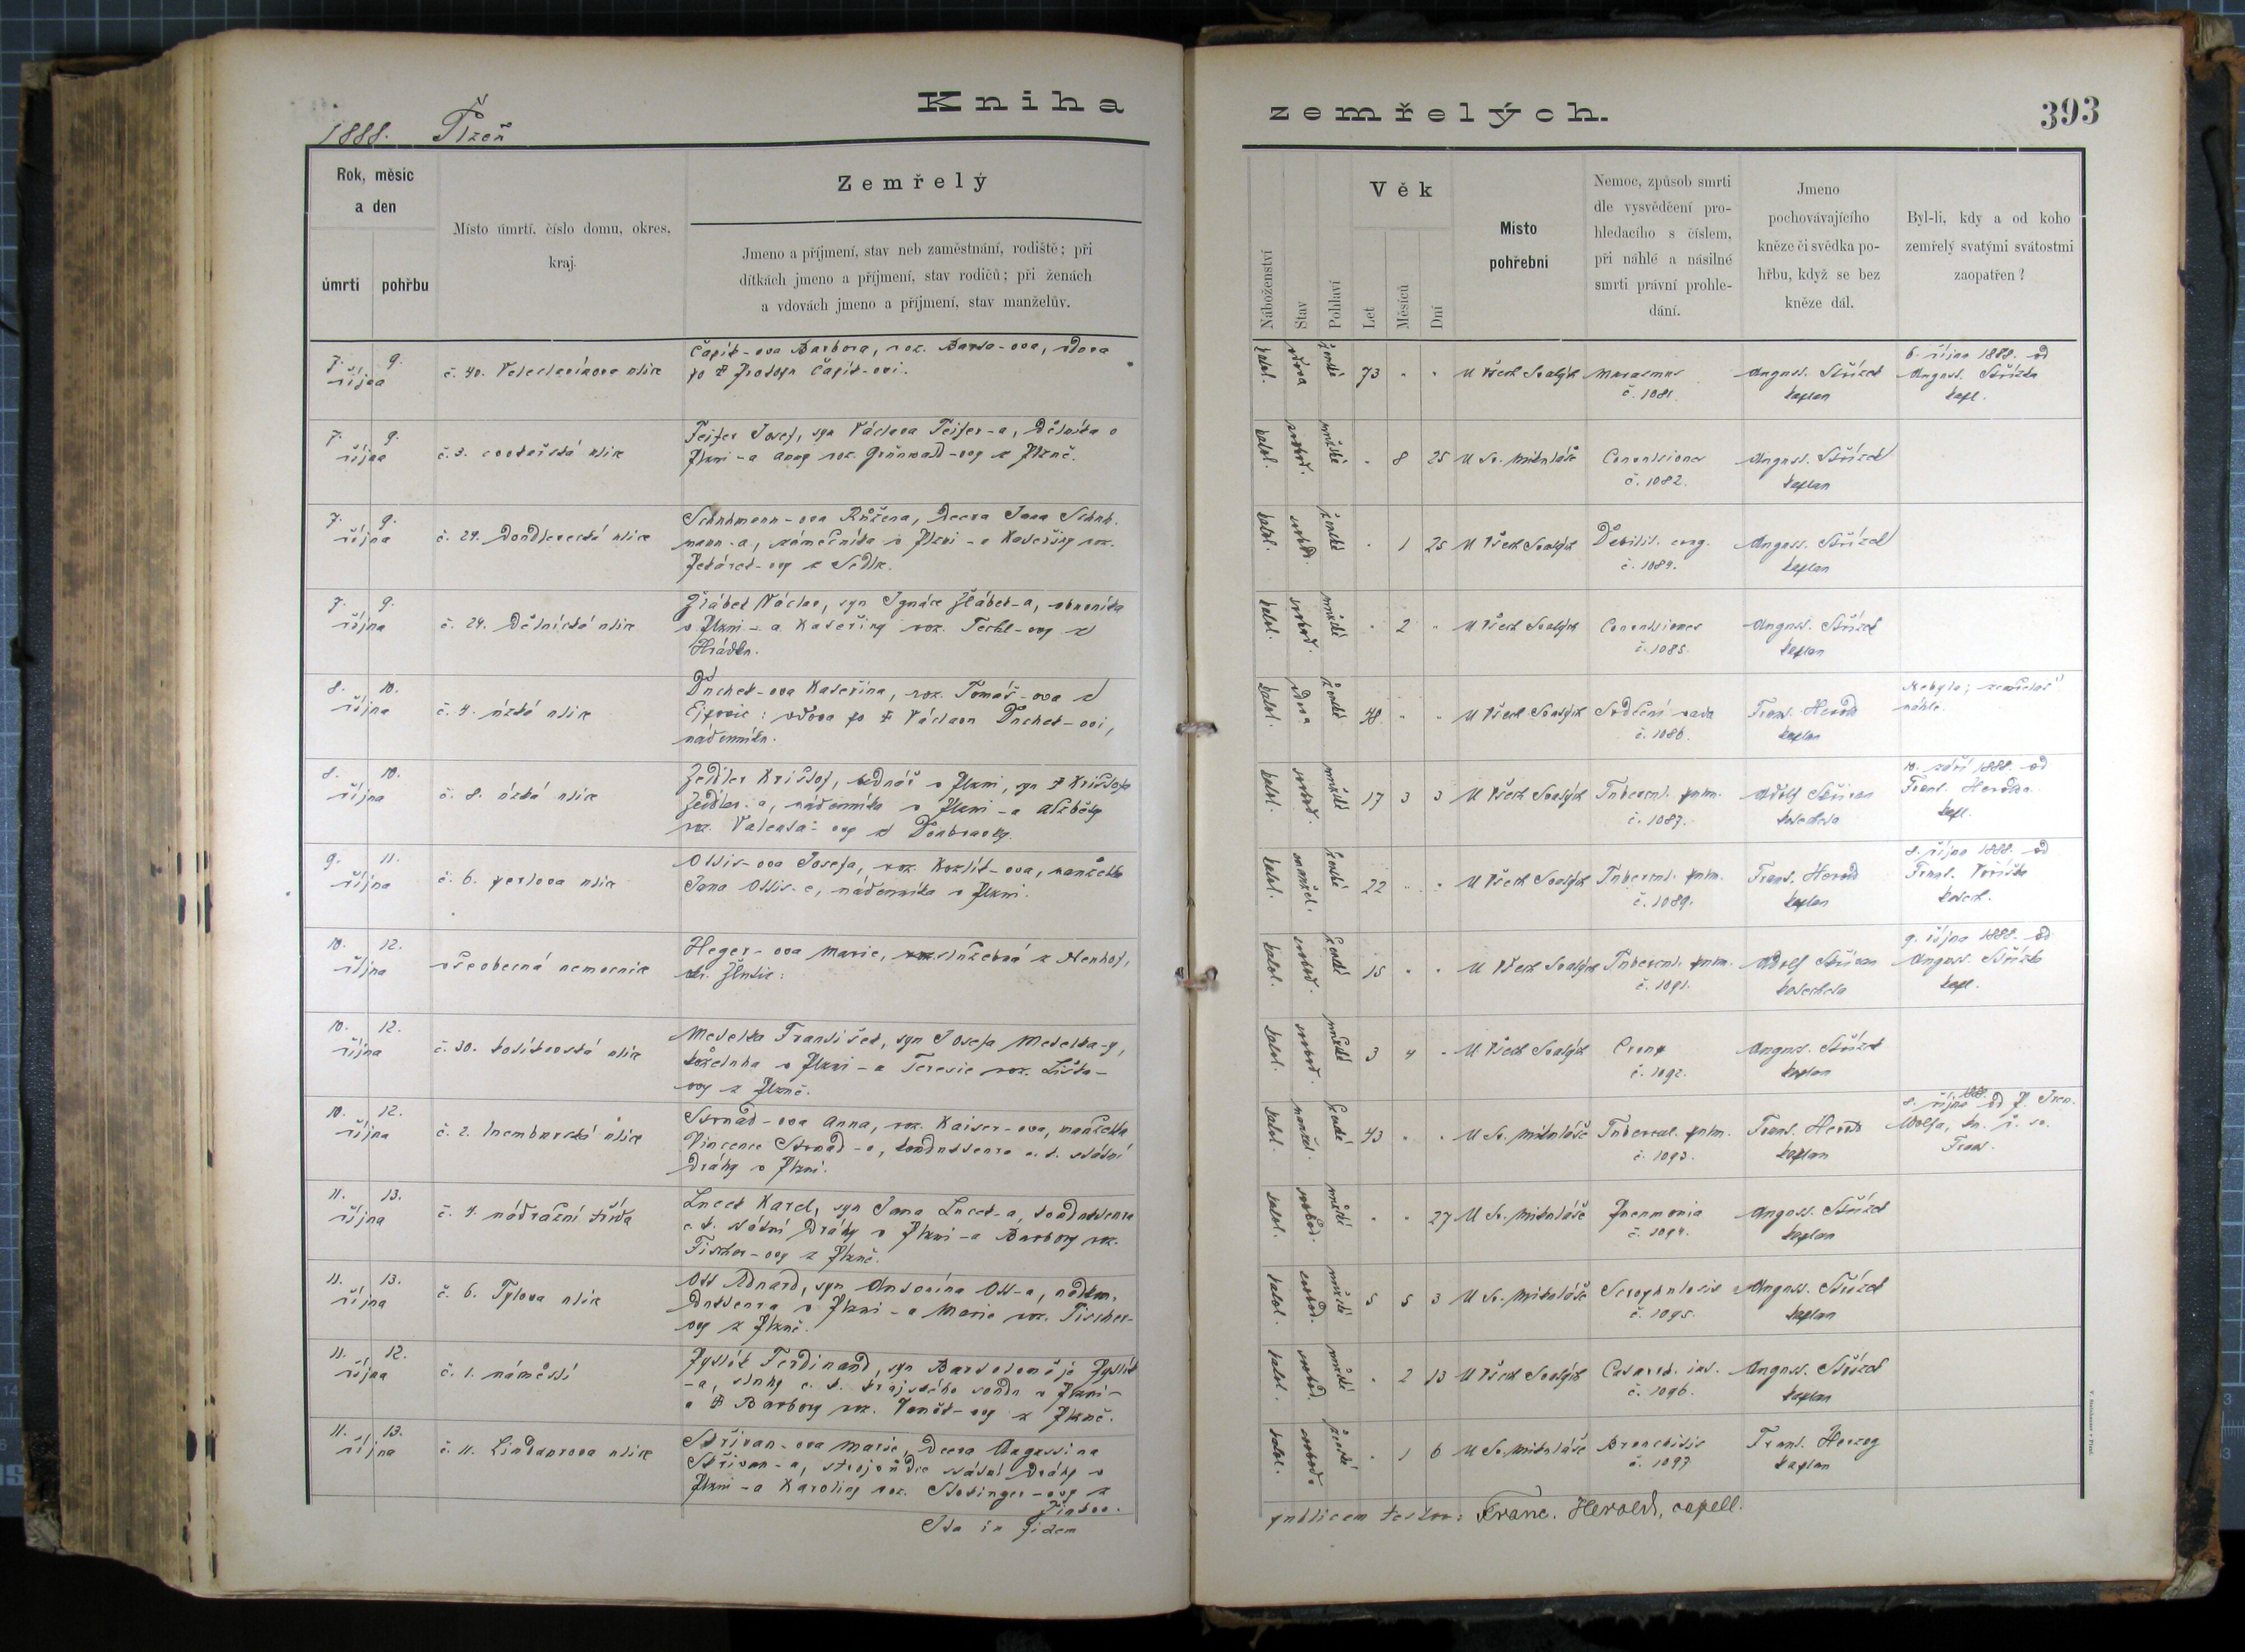 Kniha
1888. Plzeň
Rok, měsíc
a den
úmrtí pohřbu
Místo úmrtí, číslo domu, okres,
kraj.
Zemřelý
Jmeno a příjmení, stav neb zaměstnání, rodiště; při
dítkách jmeno a příjmení, stav rodičů; při ženách
a vdovách jmeno a příjmení, stav manželův.
7. 9.
října
č. 40. Veleslavínova ulice
Čapík-ova Barbora, roz. Barta-ova, vdova
po † Prokopu Čapík-ovi.
7. 9.
října
č. 3. ulice
Feifer Josef, syn Václava Feifer-a, dělníka v
Plzni - a Anny roz. Grünwald-ovy z Plzně.
7. 9.
října
č. 29. Doudlevecká ulice
Schuhmann-ova Růžena, dcera Jana Schuh-
mann-a, zámečníka v Plzni - a Kateřiny roz.
z Sedlc.
7. 9.
října
č. 24. Dělnická ulice
Žlábek Václav, syn Ignáce Žlábek-a, obuvníka
v Plzni - a Kateřiny roz. Techl-ovy z
Hrádku.
8. 10.
října
č. 4. úzká ulice
Duchek-ova Kateřina, roz. Tomáš-ova z
Ejpovic: vdova po † Václavu Duchek-ovi,
nádenníku.
8. 10.
října
č. 8. úzká ulice
Zeidler Krištof, bednář v Plzni, syn † Krištofa
Zeidler-a, nádenníka v Plzni - a Alžběty
roz. Valenta-ovy z Doubravky.
9. 11.
října
č. 6. perlova ulice
Ottis-ova Josefa, roz. Kozlík-ova, manželka
Jana Ottis-e, nádenníka v Plzni.
10. 12.
října
všeobecná nemocnice
Heger-ova Marie, služebná z Neuhof,
okr. Žlutic:
10. 12.
října
č. 30. kolikovská ulice
Metelka František, syn Josefa Metelka-y,
koželuha v Plzni - a Terezie roz. Liška-
ovy z Plzně.
10. 12.
října
č. 2. ulice
Strnad-ova Anna, roz. Kaiser-ova, manželka
Vincence Strnad-a, konduktenra c. k. státní
dráhy v Plzni.
11. 13.
října
č. 4. nádražní třída
Lucek Karel, syn Jana Lucek-a, konduktenra
c. k. státní dráhy v Plzni - a Barbory roz.
Fischer-ovy z Plzně.
11. 13.
října
č. 6. Tylova ulice
Ott Eduard, syn Antonína Ott-a,
v Plzni - a Marie roz. Fischer-
ovy z Plzně.
11. 12.
října
č. 1. náměstí
Ferdinand, syn Bartoloměje
-a, sluhy c. k. krajského soudu v Plzni -
a † Barbory roz. z Plzně.
11. 13.
října
č. 11. Lindaurova ulice
Skřivan-ova Marie, dcera Augustina
Skřivan-a, strojvůdce státní dráhy v
Plzni - a Karoliny roz.
Ita in fidem
zemřelých.
393
Náboženství
Stav
Pohlaví
Věk
Let
Měsíců
Dní
Místo
pohřební
Nemoc, způsob smrti
dle vysvědčení pro-
hledacího s číslem,
při náhlé a násilné
smrti právní prohle-
dání.
Jmeno
pochovávajícího
kněze či svědka po-
hřbu, když se bez
kněze dál.
Byl-li, kdy a od koho
zemřelý svatými svátostmi
zaopatřen?
katol. vdova ženské 73 " " U Všech Svatých Marasmus
č. 1081.
August. Střízek
kaplan
6. října 1888. od
August. Střízka
kapl.
katol. svobod. mužské " 8 25 U Sv. Mikuláše Convulsiones
č. 1082.
August. Střízek
kaplan
katol. svobod. ženské " 1 25 U Všech Svatých Debilit. cong.
č. 1084.
August. Střízek
kaplan
katol. svobod. mužské " 2 " U Všech Svatých Convulsiones
č. 1085.
August. Střízek
kaplan
katol. vdova ženské 48 " " U Všech Svatých Srdeční vada
č. 1086.
Frant. Herold
kaplan
Nebyla; zemřelať
náhle.
katol. svobod. mužské 17 3 3 U Všech Svatých Tubercul. pulm.
č. 1087.
Adolf Skřivan
katecheta
10. září 1888. od
Frant. Herolda
kapl.
katol. manžel. ženské 22 " " U Všech Svatých Tubercul. pulm.
č. 1089.
Frant. Herold
kaplan
8. října 1888. od
Frant. Voříška
katech.
katol. svobod. ženské 15 " " U Všech Svatých Tubercul. pulm.
č. 1091.
Adolf Skřivan
katecheta
9. října 1888. od
August. Střízka
kapl.
katol. svobod. mužské 3 4 " U Všech Svatých Croup
č. 1092.
August. Střízek
kaplan
katol. manžel. ženské 43 " " U Sv. Mikuláše Tubercul. pulm.
č. 1093.
Frant. Herold
kaplan
8. října 1888. od P.
Wolfa, kn. ř. sv.
Frant.
katol. svobod. mužské " " 27 U Sv. Mikuláše Pneumonia
č. 1094.
August. Střízek
kaplan
katol. svobod. mužské 5 5 3 U Sv. Mikuláše Scrophulosis
č. 1095.
August. Střízek
kaplan
katol. svobod. mužské " 2 13 U Všech Svatých Catarrh. int.
č. 1096.
August. Střízek
kaplan
katol. svobod. ženské " 1 6 U Sv. Mikuláše Bronchitis
č. 1097
Frant. Herzog
kaplan
publicam testor: Franc. Herold, capell.